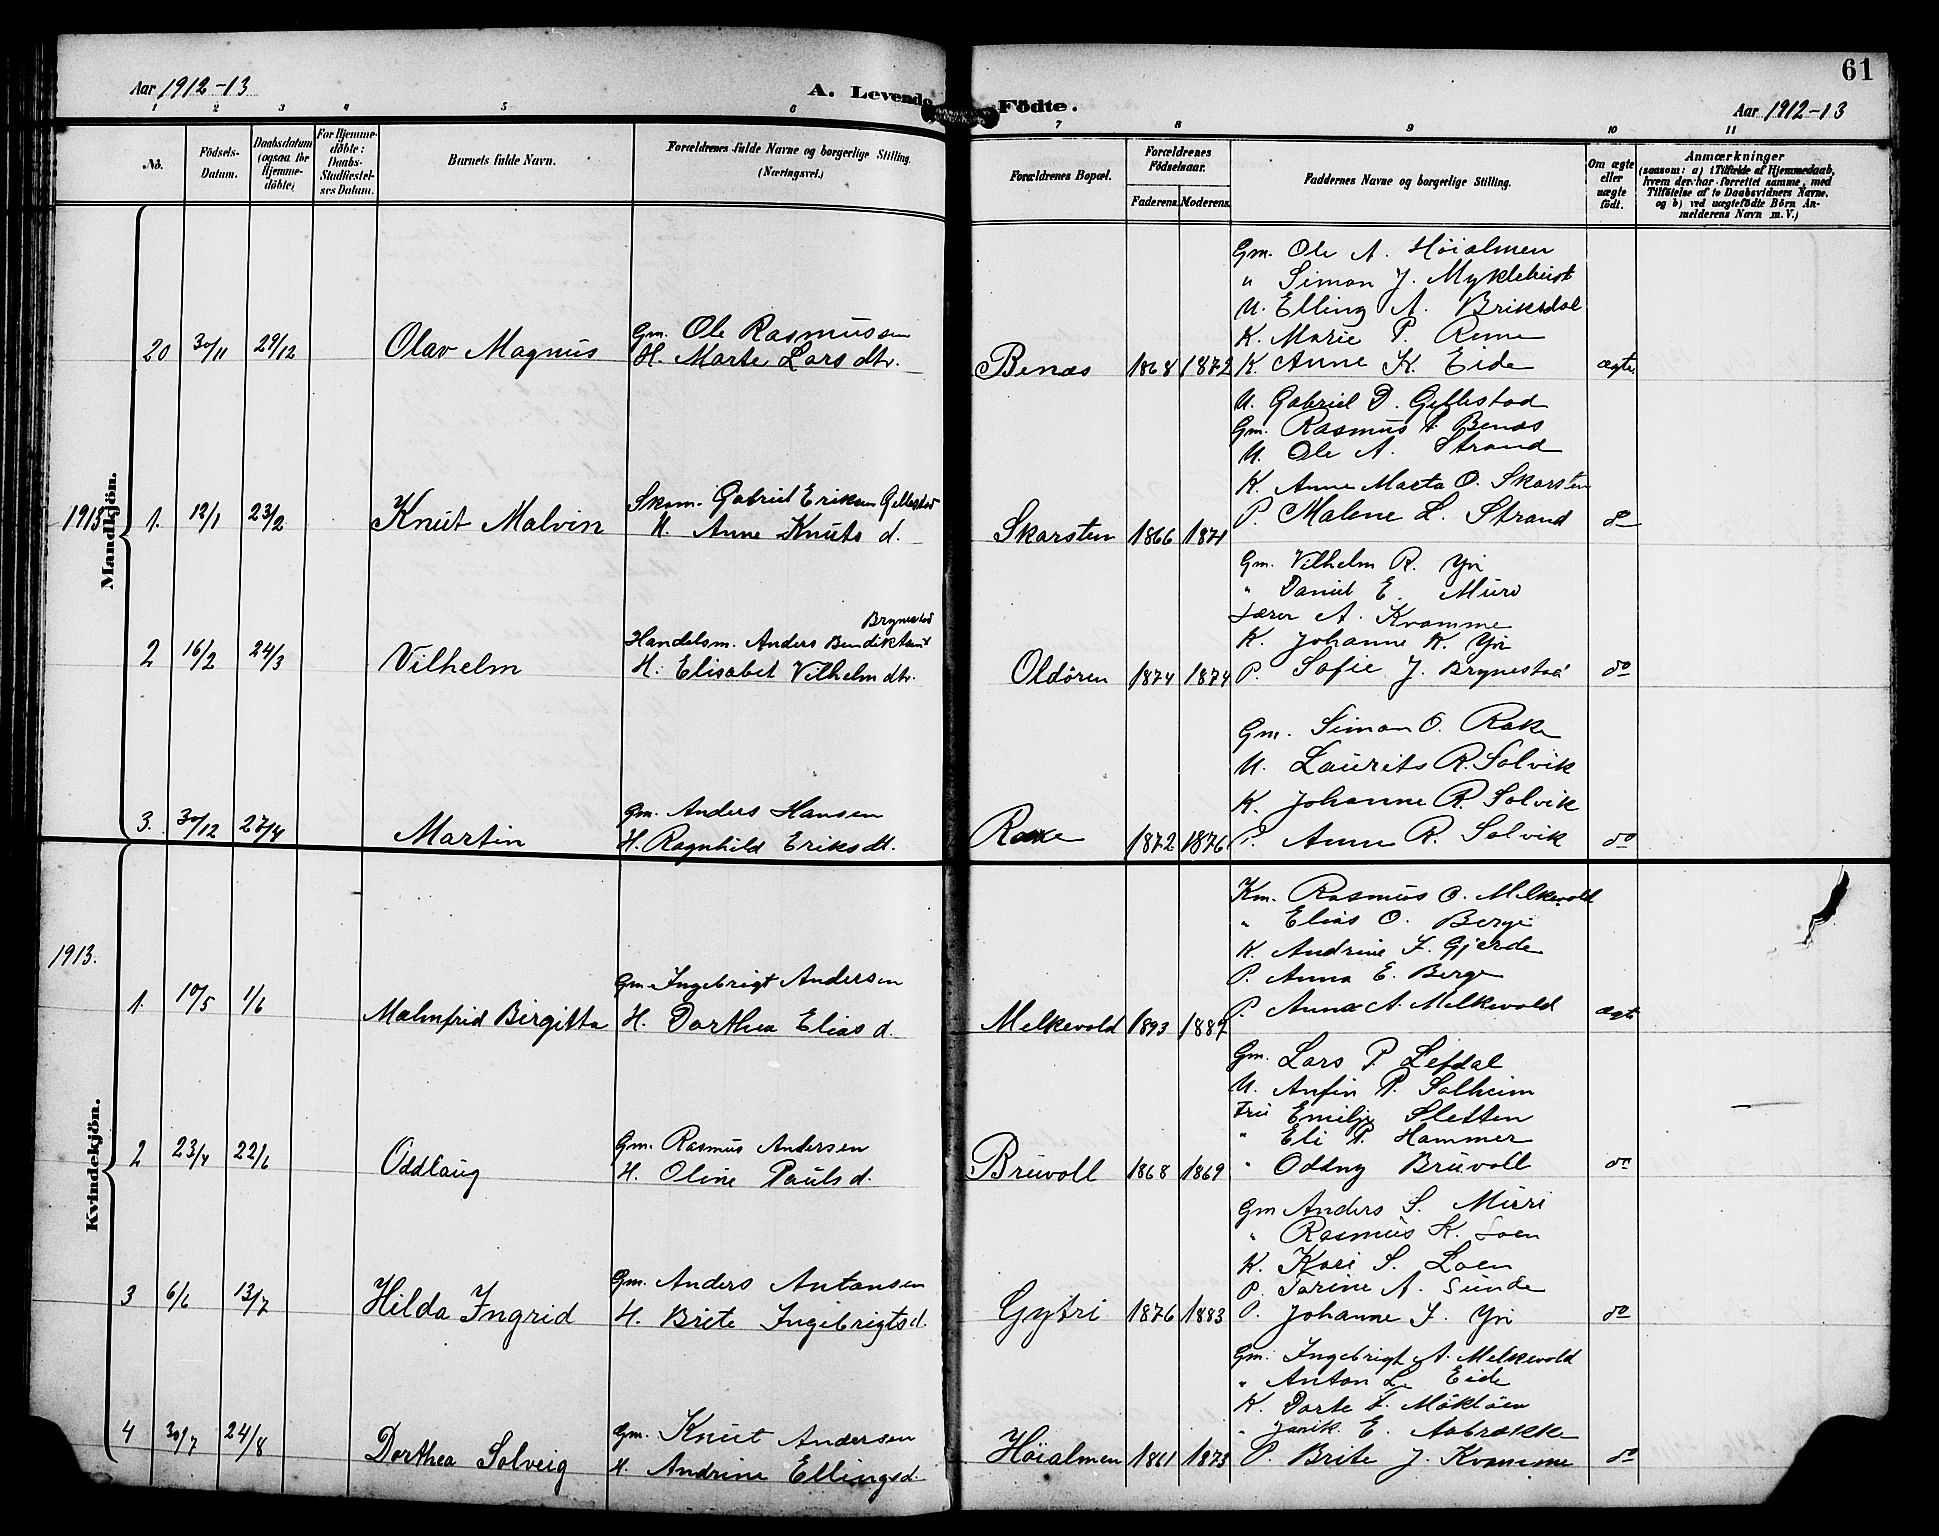 61
Aar 1912-13
A. Levende Födte.
Aar 1912-13
1 2 3 4 5 6 7 8 9 10 11
No.
Födsels-
Datum.
Daabsdatum
(ogsaa for
Hjemme-
döbte)
For Hjemme-
döbte:
Daabs-
Stadfæstel-
ses Datum.
Barnets fulde Navn.
Forældrenes fulde Navne og borgerlige Stilling.
(Næringsvei.)
Forældrenes Bopæl.
Forældrenes
Födselsaar.
Faderens. Moderens.
Faddernes Navne og borgerlige Stilling.
Om ægte
eller
uægte
födt.
Anmærkninger
(saasom: a) i Tilfælde af Hjemmedaab,
hvem der har forrettet samme, med
Tilföielse af to Daabsvidners Navne.
og b) ved uægtefödte Börn An-
melderens Navn m. V.)
Mandkjön.
20 30/11 29/12 Olav Magnus
Gm. Ole Rasmussen
H. Marte Lars dtr.
Benæs 1868 1872
Gm. Ole A. Höialmen
" Simon J. Myklebust
U. Elling A. Briksdal
K. Marie P. Rene
K. Anne K. Eide
ægte
1913
1. 12/1 23/2 Knut Malvin
Skom. Gabriel Eriksen Gellestad
H. Anne Knuts d.
Skarsten 1866 1871
U. Gabriel D. Gellestad
Gm. Rasmus A. Benæs
U. Ole A. Strand
K. Anne Marta O. Skarsten
P. Malene L. Strand
do
2 16/2 24/3 Vilhelm
Brynestad
Handelsm. Anders Bendiktsen
H. Elisabet Vilhelm dtr.
Oldören 1874 1874
Gm. Vilhelm R. Yri
" Daniel E. Muri
Lærer A. Kvamme
K. Johanne K. Yri
P. Sofie J. Brynestad
do
3. 30/12 27/4 Martin
Gm. Anders Hansen
H. Ragnhild Eriks dt.
Rake 1872 1876
Gm. Simon O. Rake
U. Laurits R. Solvik
K. Johanne R. Solvik
P. Anne R. Solvik
do
1913.
Kvindekjön.
1. 10/5 1/6 Malmfrid Birgitta
Gm. Ingebrigt Andersen
H. Dorthea Elias d.
Melkevold 1893 1889
Km. Rasmus O. Melkevold
" Elias O. Berge
K. Andrine I. Gjerde
P. Anna E. Berge
P. Anna A. Melkevold
ægte
2 23/4 22/6 Oddlaug
Gm. Rasmus Andersen
H. Oline Pauls d.
Bruvoll 1868 1869
Gm. Lars P. Lefdal
U. Anfin P. Solheim
Fru Emilje Sletten
" Eli P. Hammer
" Oddny Bruvoll
do
3 6/6 13/7 Hilda Ingrid
Gm. Anders Antonsen
H. Brite Ingebrigts d.
Gytri 1876 1883
Gm Anders S. Muri
" Rasmus K. Loen
K. Kari S. Loen
P. Tarine A. Sunde
P. Johanne I. Yri
do
4 30/7 24/8 Dorthea Solveig
Gm. Knut Andersen
H. Andrine Ellings d.
Höialmen 1861 1873
Gm. Ingebrigt A. Melkevold
" Anton L. Eide
K. Dorte
" E. Aabrække
P. Brite J. Kvamme
do